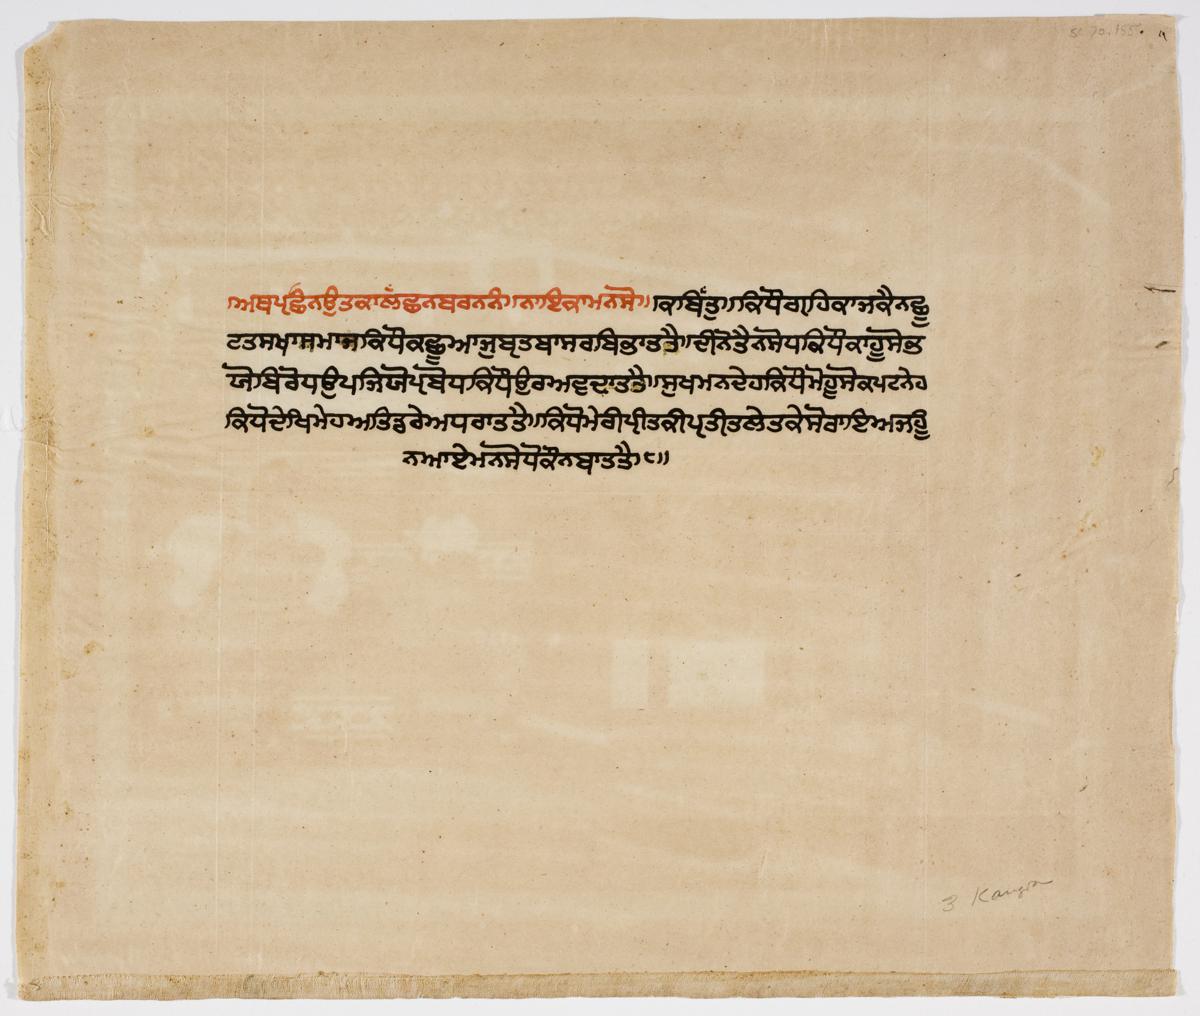 ।ਅਥਪ੍ਰਛਿੰਨਉਤਕਾਲੱਛਨਬਰਨਨੰ।।ਨਾਇਕਾਮਨਸੋ।।ਕਾਬਿੱਤੁ।।ਕਿਧੌਗ੍ਰਹਿਕਾਜਕੈਨਛੂ
ਟਤਸਖਾਸਮਾਜਕਿਧੌਕਛੂਆਜੁਬ੍ਰਤਬਾਸਰਬਿਭਾਤਤੈ।।ਦੀਨੋਤੈਨਸੋਧਕਿਧੌਕਾਹੂਸੋਭ
ਯੋਬਿਰੋਧਉਪਜਿਯੋਪ੍ਰਬੋਧਕਿਧੌਉਰਅਵਦਾਤਤੈ।।ਸੁਖਮਨਦੇਹਕਿਧੌਮੋਹੂਸੋਕਪਟਨੇਹ
ਕਿਧੌਦੇਖਿਮੇਹਅਤਿਡਰੇਅਧਰਾਤਤੈ।।ਕਿਧੌਮੇਰੀਪ੍ਰੀਤਕੀਪ੍ਰਤੀਤਲੇਤਕੇਸੋਰਾਇਅਜਹੂੰ
ਨਆਏਮਨਸੋਧੌਕੌਨਬਾਤਤੈ।੮।।
3 Kangra